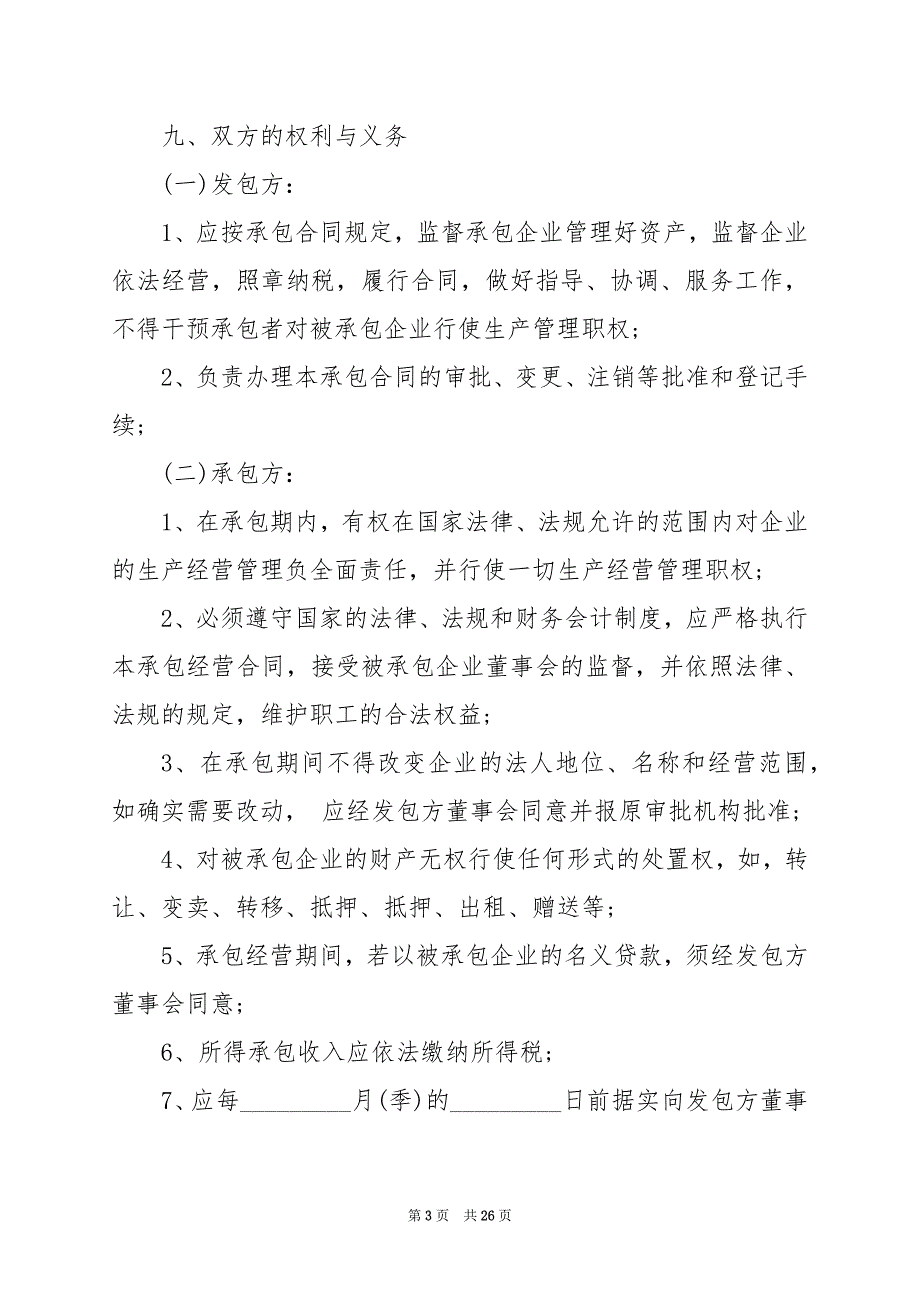 九、双方的权利与义务
(一)发包方：
1、应按承包合同规定，监督承包企业管理好资产，监督企业
依法经营，照章纳税，履行合同，做好指导、协调、服务工作，
不得干预承包者对被承包企业行使生产管理职权;
2、负责办理本承包合同的审批、变更、注销等批准和登记手
续;
(二)承包方：
1、在承包期内，有权在国家法律、法规允许的范围内对企业
的生产经营管理负全面责任，并行使一切生产经营管理职权;
2、必须遵守国家的法律、法规和财务会计制度，应严格执行
本承包经营合同，接受被承包企业董事会的监督，并依照法律、
法规的规定，维护职工的合法权益;
3、在承包期间不得改变企业的法人地位、名称和经营范围，
如确实需要改动， 应经发包方董事会同意并报原审批机构批准;
4、对被承包企业的财产无权行使任何形式的处置权，如，转
让、变卖、转移、抵押、抵押、出租、赠送等;
5、承包经营期间，若以被承包企业的名义贷款，须经发包方
董事会同意;
6、所得承包收入应依法缴纳所得税;
7、应每_________月(季)的_________日前据实向发包方董事
第 3 页 共 26 页